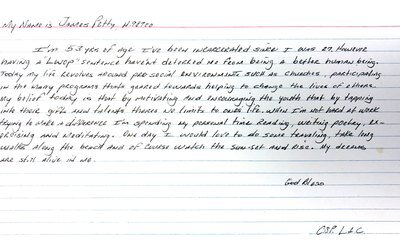 My Name is James Petty H.78700
I'm 53 yrs of age I've been incarcerated since I was 27. However
having a "LWOP" sentence haven't deterred me from being a better human being.
Today my life involves around pro-social environments such as churches, participating
in the many programs thats geared towards helping to change the lives of others.
My belief today is that by motivating and encouraging the youth that by tapping
into their gifts and talents theres no limits to ones life. when I'm not hard at work
trying to make a difference I'm spending my personal time reading, writing poetry, ex-
ercising and meditating. One day I would love to do some traveling, take long
walks along the beach and of course watch the sun-set and rise. My dreams
are still alive in me.
God Bless
CSP. LAC.